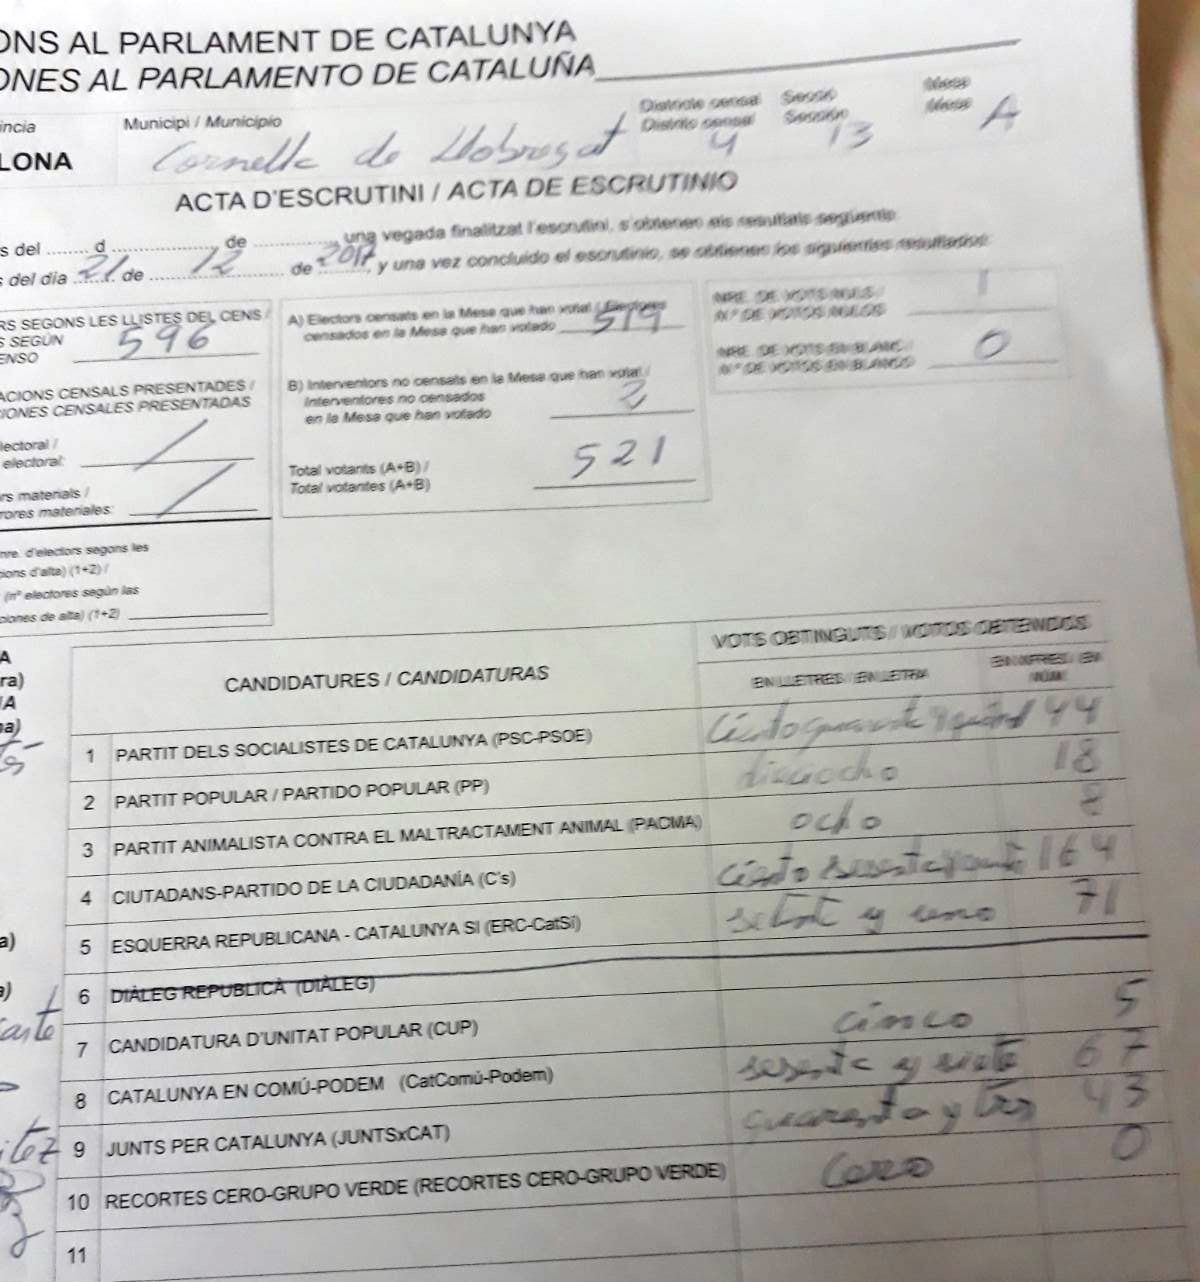 ONS AL PARLAMENT DE CATALUNYA
ONES AL PARLAMENTO DE CATALUÑA
incia
Municipi / Municipio
Districte censal
Distrito censal
Secció
Sección
Mesa
Mesa
LONA
Cornella de Llobregat
4
13
A
ACTA D'ESCRUTINI / ACTA DE ESCRUTINIO
s del ....... d .................. de ............... una vegada finalitzat l'escrutini, s'obtenen els resultats següents:
s del día 21 de 12 de 2017, y una vez concluido el escrutinio, se obtienen los siguientes resultados:
RS SEGONS LES LLISTES DEL CENS /
S SEGÚN
ENSO
596
ACIONS CENSALS PRESENTADES /
IONES CENSALES PRESENTADAS
lectoral /
electoral:
rs materials /
rores materiales:
nre. d'electors segons les
cions d'alta) (1+2) /
(nº electores según las
ciones de alta) (1+2)
A) Electors censats en la Mesa que han votat / Electores
censados en la Mesa que han votado
519
B) Interventors no censats en la Mesa que han votat /
Interventores no censados
en la Mesa que han votado
2
Total votants (A+B) /
Total votantes (A+B)
521
NRE. DE VOTS NULS /
N.º DE VOTOS NULOS
1
NRE. DE VOTS EN BLANC /
N.º DE VOTOS EN BLANCO
0
A
ra)
IA
na)
a)
CANDIDATURES / CANDIDATURAS
VOTS OBTINGUTS / VOTOS OBTENIDOS
EN LLETRES / EN LETRA
EN XIFRES / EN
NÚM.
1 PARTIT DELS SOCIALISTES DE CATALUNYA (PSC-PSOE) 44
2 PARTIT POPULAR / PARTIDO POPULAR (PP) dieciocho 18
3 PARTIT ANIMALISTA CONTRA EL MALTRACTAMENT ANIMAL (PACMA) ocho 8
4 CIUTADANS-PARTIDO DE LA CIUDADANÍA (C's) ciento sesenta y cuatro 164
5 ESQUERRA REPUBLICANA - CATALUNYA SI (ERC-CatSí) setenta y uno 71
6 DIÀLEG REPUBLICÀ (DIÀLEG)
7 CANDIDATURA D'UNITAT POPULAR (CUP) cinco 5
8 CATALUNYA EN COMÚ-PODEM (CatComú-Podem) sesenta y siete 67
9 JUNTS PER CATALUNYA (JUNTSxCAT) cuarenta y tres 43
10 RECORTES CERO-GRUPO VERDE (RECORTES CERO-GRUPO VERDE) Cero 0
11